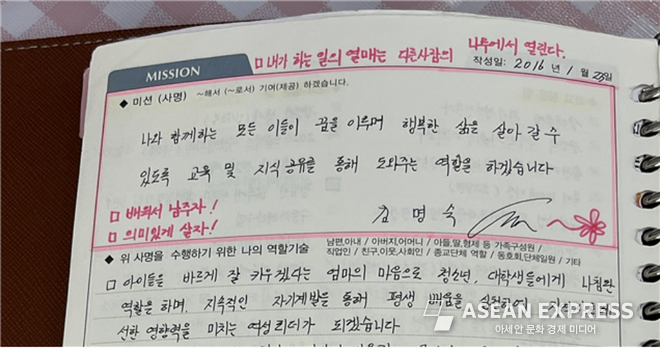 □ 내가 하는 일의 열매는 다른사람의 나무에서 열린다.
MISSION
작성일: 2016 년 1 월 28일
◆ 미션 (사명) ~해서 (~로서) 기여(제공) 하겠습니다.
나와 함께하는 모든 이들이 꿈을 이루며 행복한 삶을 살아 갈 수
있도록 교육 및 지식 공유를 통해 도와주는 역할을 하겠습니다
□ 배워서 남주자!
김 명 숙
□ 의미있게 살자!
◆ 위 사명을 수행하기 위한 나의 역할기술
남편,아내 / 아버지,어머니 / 아들,딸,형제 등 가족구성원 /
직업인 / 친구,이웃,사회인 / 종교단체 역할 / 동호회,단체일원 / 기타
□ 아이들을 바르게 잘 키우겠다는 엄마의 마음으로 청소년, 대학생들에게 나침판
역할을 하며, 지속적인 자기계발을 통해 평생 배움을
선한 영향력을 미치는 여성리더가 되겠습니다
ASEAN EXPRESS
아세안 문화 경제 미디어